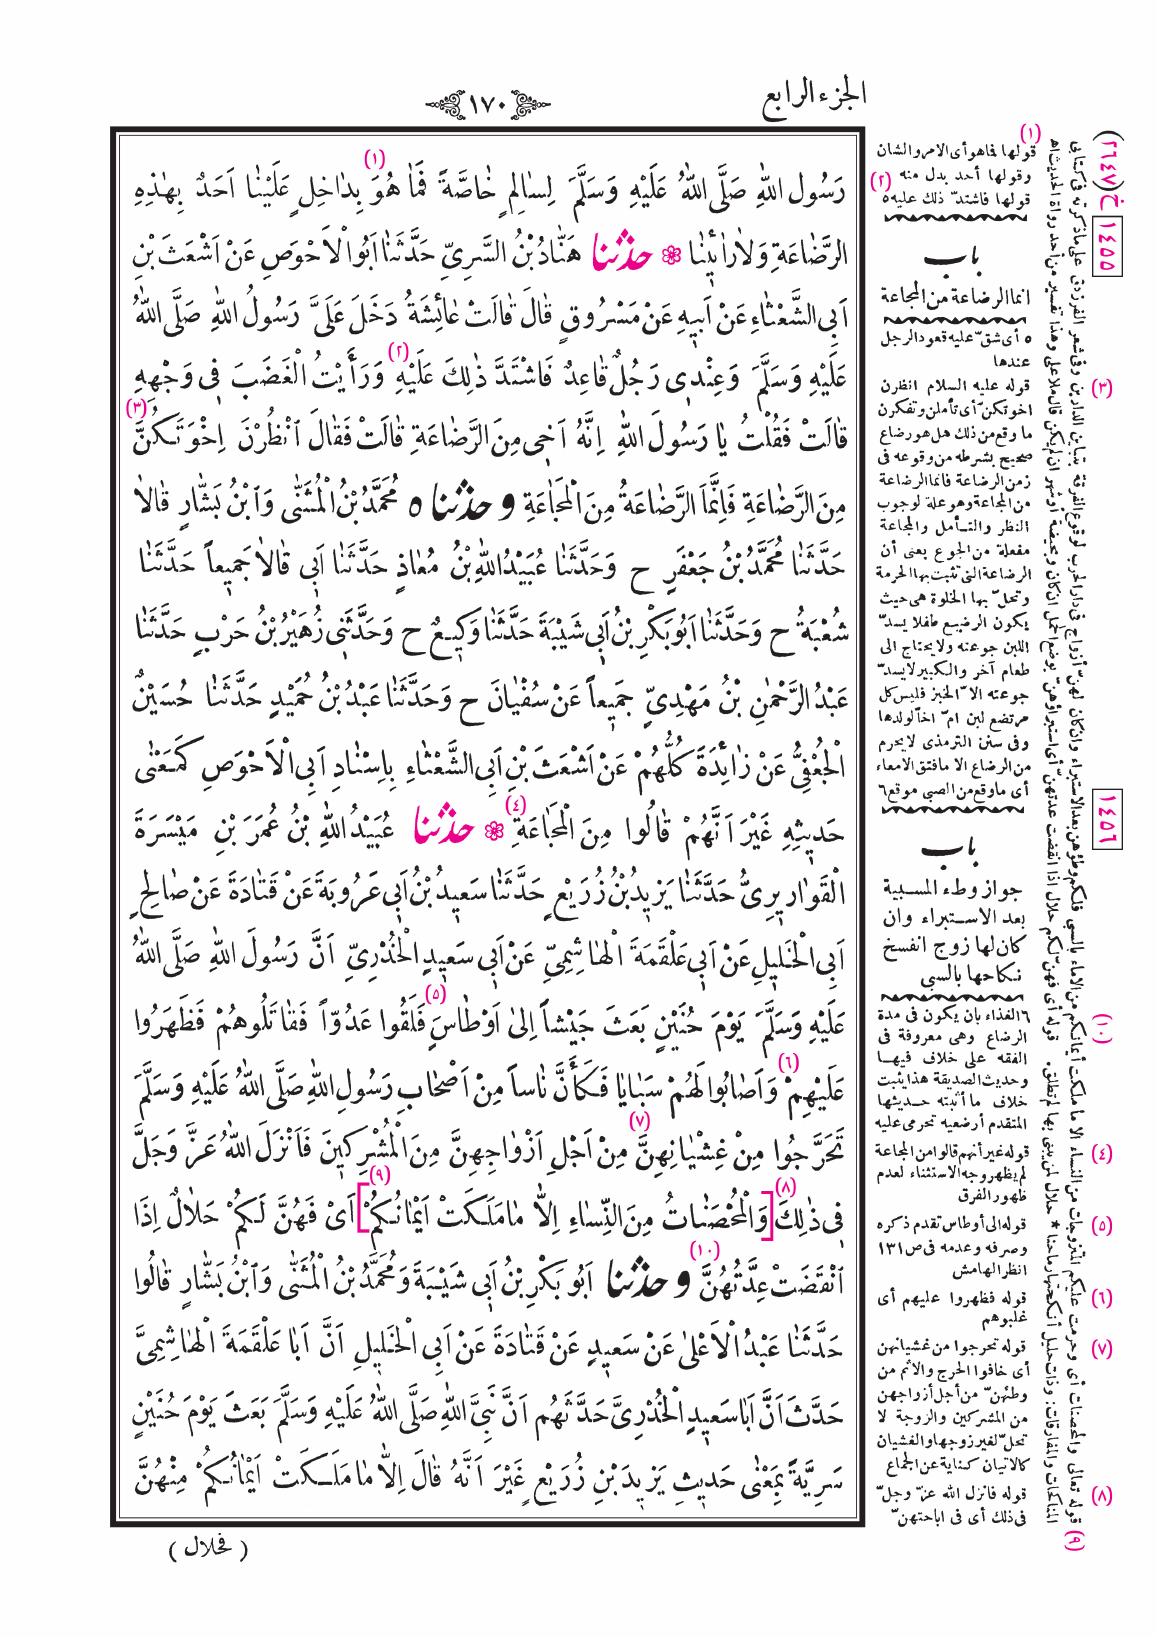 الجزء الرابع
١٧٠
رَسُولِ اللّٰهِ صَلَّى اللّٰهُ عَلَيْهِ وَسَلَّمَ لِسَالِمٍ خَاصَّةً فَمَا هُوَ (١) بِدَاخِلٍ عَلَيْنَا اَحَدٌ بِهٰذِهِ
الرَّضَاعَةِ وَلَا رَائِينَا ❁ حدثنا هَنَّادُ بْنُ السَّرِىِّ حَدَّثَنَا اَبُو الْاَحْوَصِ عَنْ اَشْعَثَ بْنِ
اَبِى الشَّعْثَاءِ عَنْ اَبِيهِ عَنْ مَسْرُوقٍ قَالَ قَالَتْ عَائِشَةُ دَخَلَ عَلَىَّ رَسُولُ اللّٰهِ صَلَّى اللّٰهُ
عَلَيْهِ وَسَلَّمَ وَعِنْدِى رَجُلٌ قَاعِدٌ فَاشْتَدَّ ذٰلِكَ عَلَيْهِ (٢) وَرَأَيْتُ الْغَضَبَ فِى وَجْهِهِ
قَالَتْ فَقُلْتُ يَا رَسُولَ اللّٰهِ اِنَّهُ اَخِى مِنَ الرَّضَاعَةِ قَالَتْ فَقَالَ اُنْظُرْنَ اِخْوَتَكُنَّ (٣)
مِنَ الرَّضَاعَةِ فَاِنَّمَا الرَّضَاعَةُ مِنَ الْمَجَاعَةِ و حدثنا ه مُحَمَّدُ بْنُ الْمُثَنّٰى وَابْنُ بَشَّارٍ قَالَا
حَدَّثَنَا مُحَمَّدُ بْنُ جَعْفَرٍ ح وَحَدَّثَنَا عُبَيْدُ اللّٰهِ بْنُ مُعَاذٍ حَدَّثَنَا اَبِى قَالَا جَمِيعاً حَدَّثَنَا
شُعْبَةُ ح وَحَدَّثَنَا اَبُو بَكْرِ بْنُ اَبِى شَيْبَةَ حَدَّثَنَا وَكِيعٌ ح وَحَدَّثَنِى زُهَيْرُ بْنُ حَرْبٍ حَدَّثَنَا
عَبْدُ الرَّحْمٰنِ بْنُ مَهْدِىٍّ جَمِيعاً عَنْ سُفْيَانَ ح وَحَدَّثَنَا عَبْدُ بْنُ حُمَيْدٍ حَدَّثَنَا حُسَيْنٌ
الْجُعْفِىُّ عَنْ زَائِدَةَ كُلُّهُمْ عَنْ اَشْعَثَ بْنِ اَبِى الشَّعْثَاءِ بِاِسْنَادِ اَبِى الْاَحْوَصِ كَمَعْنٰى
حَدِيثِهِ غَيْرَ اَنَّهُمْ قَالُوا مِنَ الْمَجَاعَةِ (٤) ❁ حدثنا عُبَيْدُ اللّٰهِ بْنُ عُمَرَ بْنِ مَيْسَرَةَ
الْقَوَارِيرِىُّ حَدَّثَنَا يَزِيدُ بْنُ زُرَيْعٍ حَدَّثَنَا سَعِيدُ بْنُ اَبِى عَرُوبَةَ عَنْ قَتَادَةَ عَنْ صَالِحٍ
اَبِى الْخَلِيلِ عَنْ اَبِى عَلْقَمَةَ الْهَاشِمِىِّ عَنْ اَبِى سَعِيدٍ الْخُدْرِىِّ اَنَّ رَسُولَ اللّٰهِ صَلَّى اللّٰهُ
عَلَيْهِ وَسَلَّمَ يَوْمَ حُنَيْنٍ بَعَثَ جَيْشاً اِلٰى اَوْطَاسَ (٥) فَلَقُوا عَدُوّاً فَقَاتَلُوهُمْ فَظَهَرُوا
عَلَيْهِمْ (٦) وَاَصَابُوا لَهُمْ سَبَايَا فَكَأَنَّ نَاساً مِنْ اَصْحَابِ رَسُولِ اللّٰهِ صَلَّى اللّٰهُ عَلَيْهِ وَسَلَّمَ
تَحَرَّجُوا مِنْ غِشْيَانِهِنَّ (٧) مِنْ اَجْلِ اَزْوَاجِهِنَّ مِنَ الْمُشْرِكِينَ فَاَنْزَلَ اللّٰهُ عَزَّ وَجَلَّ
فِى ذٰلِكَ (٨) [وَالْمُحْصَنَاتُ مِنَ النِّسَاءِ اِلَّا مَا مَلَكَتْ اَيْمَانُكُمْ] (٩) اَىْ فَهُنَّ لَكُمْ حَلَالٌ اِذَا
اَنْقَضَتْ عِدَّتُهُنَّ (١٠) و حدثنا اَبُو بَكْرِ بْنُ اَبِى شَيْبَةَ وَمُحَمَّدُ بْنُ الْمُثَنّٰى وَابْنُ بَشَّارٍ قَالُوا
حَدَّثَنَا عَبْدُ الْاَعْلٰى عَنْ سَعِيدٍ عَنْ قَتَادَةَ عَنْ اَبِى الْخَلِيلِ اَنَّ اَبَا عَلْقَمَةَ الْهَاشِمِىَّ
حَدَّثَ اَنَّ اَبَا سَعِيدٍ الْخُدْرِىَّ حَدَّثَهُمْ اَنَّ نَبِىَّ اللّٰهِ صَلَّى اللّٰهُ عَلَيْهِ وَسَلَّمَ بَعَثَ يَوْمَ حُنَيْنٍ
سَرِيَّةً بِمَعْنٰى حَدِيثِ يَزِيدَ بْنِ زُرَيْعٍ غَيْرَ اَنَّهُ قَالَ اِلَّا مَا مَلَكَتْ اَيْمَانُكُمْ مِنْهُنَّ
( فحلال )
(١) قولها فما هو أى الامر والشان
وقولها أحد بدل منه
(٢) قولها فاشتدّ ذلك عليه ه
باب
انما الرضاعة من المجاعة
ه أى شقّ عليه قعود الرجل
عندها
(٣) قوله عليه السلام انظرن
اخوتكنّ أى تأملن وتفكرن
ما وقع من ذلك هل هو رضاع
صحيح بشرطه من وقوعه فى
زمن الرضاعة فانما الرضاعة
من المجاعة وهو علة لوجوب
النظر والتأمل والمجاعة
مفعلة من الجوع يعنى أن
الرضاعة التى تثبت بها الحرمة
وتحلّ بها الخلوة هى حيث
يكون الرضيع طفلا يسدّ
اللبن جوعته ولا يحتاج الى
طعام آخر والكبير لا يسدّ
جوعته الا الخبز فليس كل
مرتضع لبن امّ اخاً لولدها
وفى سنن الترمذى لا يحرم
من الرضاع الا ما فتق الامعاء
أى ما وقع من الصبى موقع ٦
باب
جواز وطء المسبية
بعد الاستبراء وان
كان لها زوج انفسخ
نكاحها بالسبى
٦ الغذاء بان يكون فى مدة
الرضاع وهى معروفة فى
الفقه على خلاف فيها
وحديث الصديقة هذا يثبت
خلاف ما أثبته حديثها
المتقدم أرضعيه تحرمى عليه
(٤) قوله غير أنهم قالوا من المجاعة
لم يظهر وجه الاستثناء لعدم
ظهور الفرق
(٥) قوله الى أوطاس تقدم ذكره
وصرفه وعدمه فى ص ١٣١
انظر الهامش
(٦) قوله فظهروا عليهم أى
غلبوهم
(٧) قوله تحرجوا من غشيانهن
أى خافوا الحرج والاثم من
وطئهنّ من أجل أزواجهن
من المشركين والزوجة لا
تحلّ لغير زوجها والغشيان
كالاتيان كناية عن الجماع
(٨) قوله فانزل الله عزّ وجلّ
فى ذلك أى فى اباحتهنّ
١٤٥٥ خ (٢٦٤٧)
١٤٥٦
(٩) قوله تعالى والمحصنات أى وحرمت عليكم المتزوجات من النساء الا ما ملكت أيمانكم من الاماء بالسبي فلكم وطؤهن بعد الاستبراء وان كان لهنّ أزواج فى دار الحرب لوقوع الفرقة بتباين الدارين وفى شعر الفرزدق على ما ذكرته فى كتابى